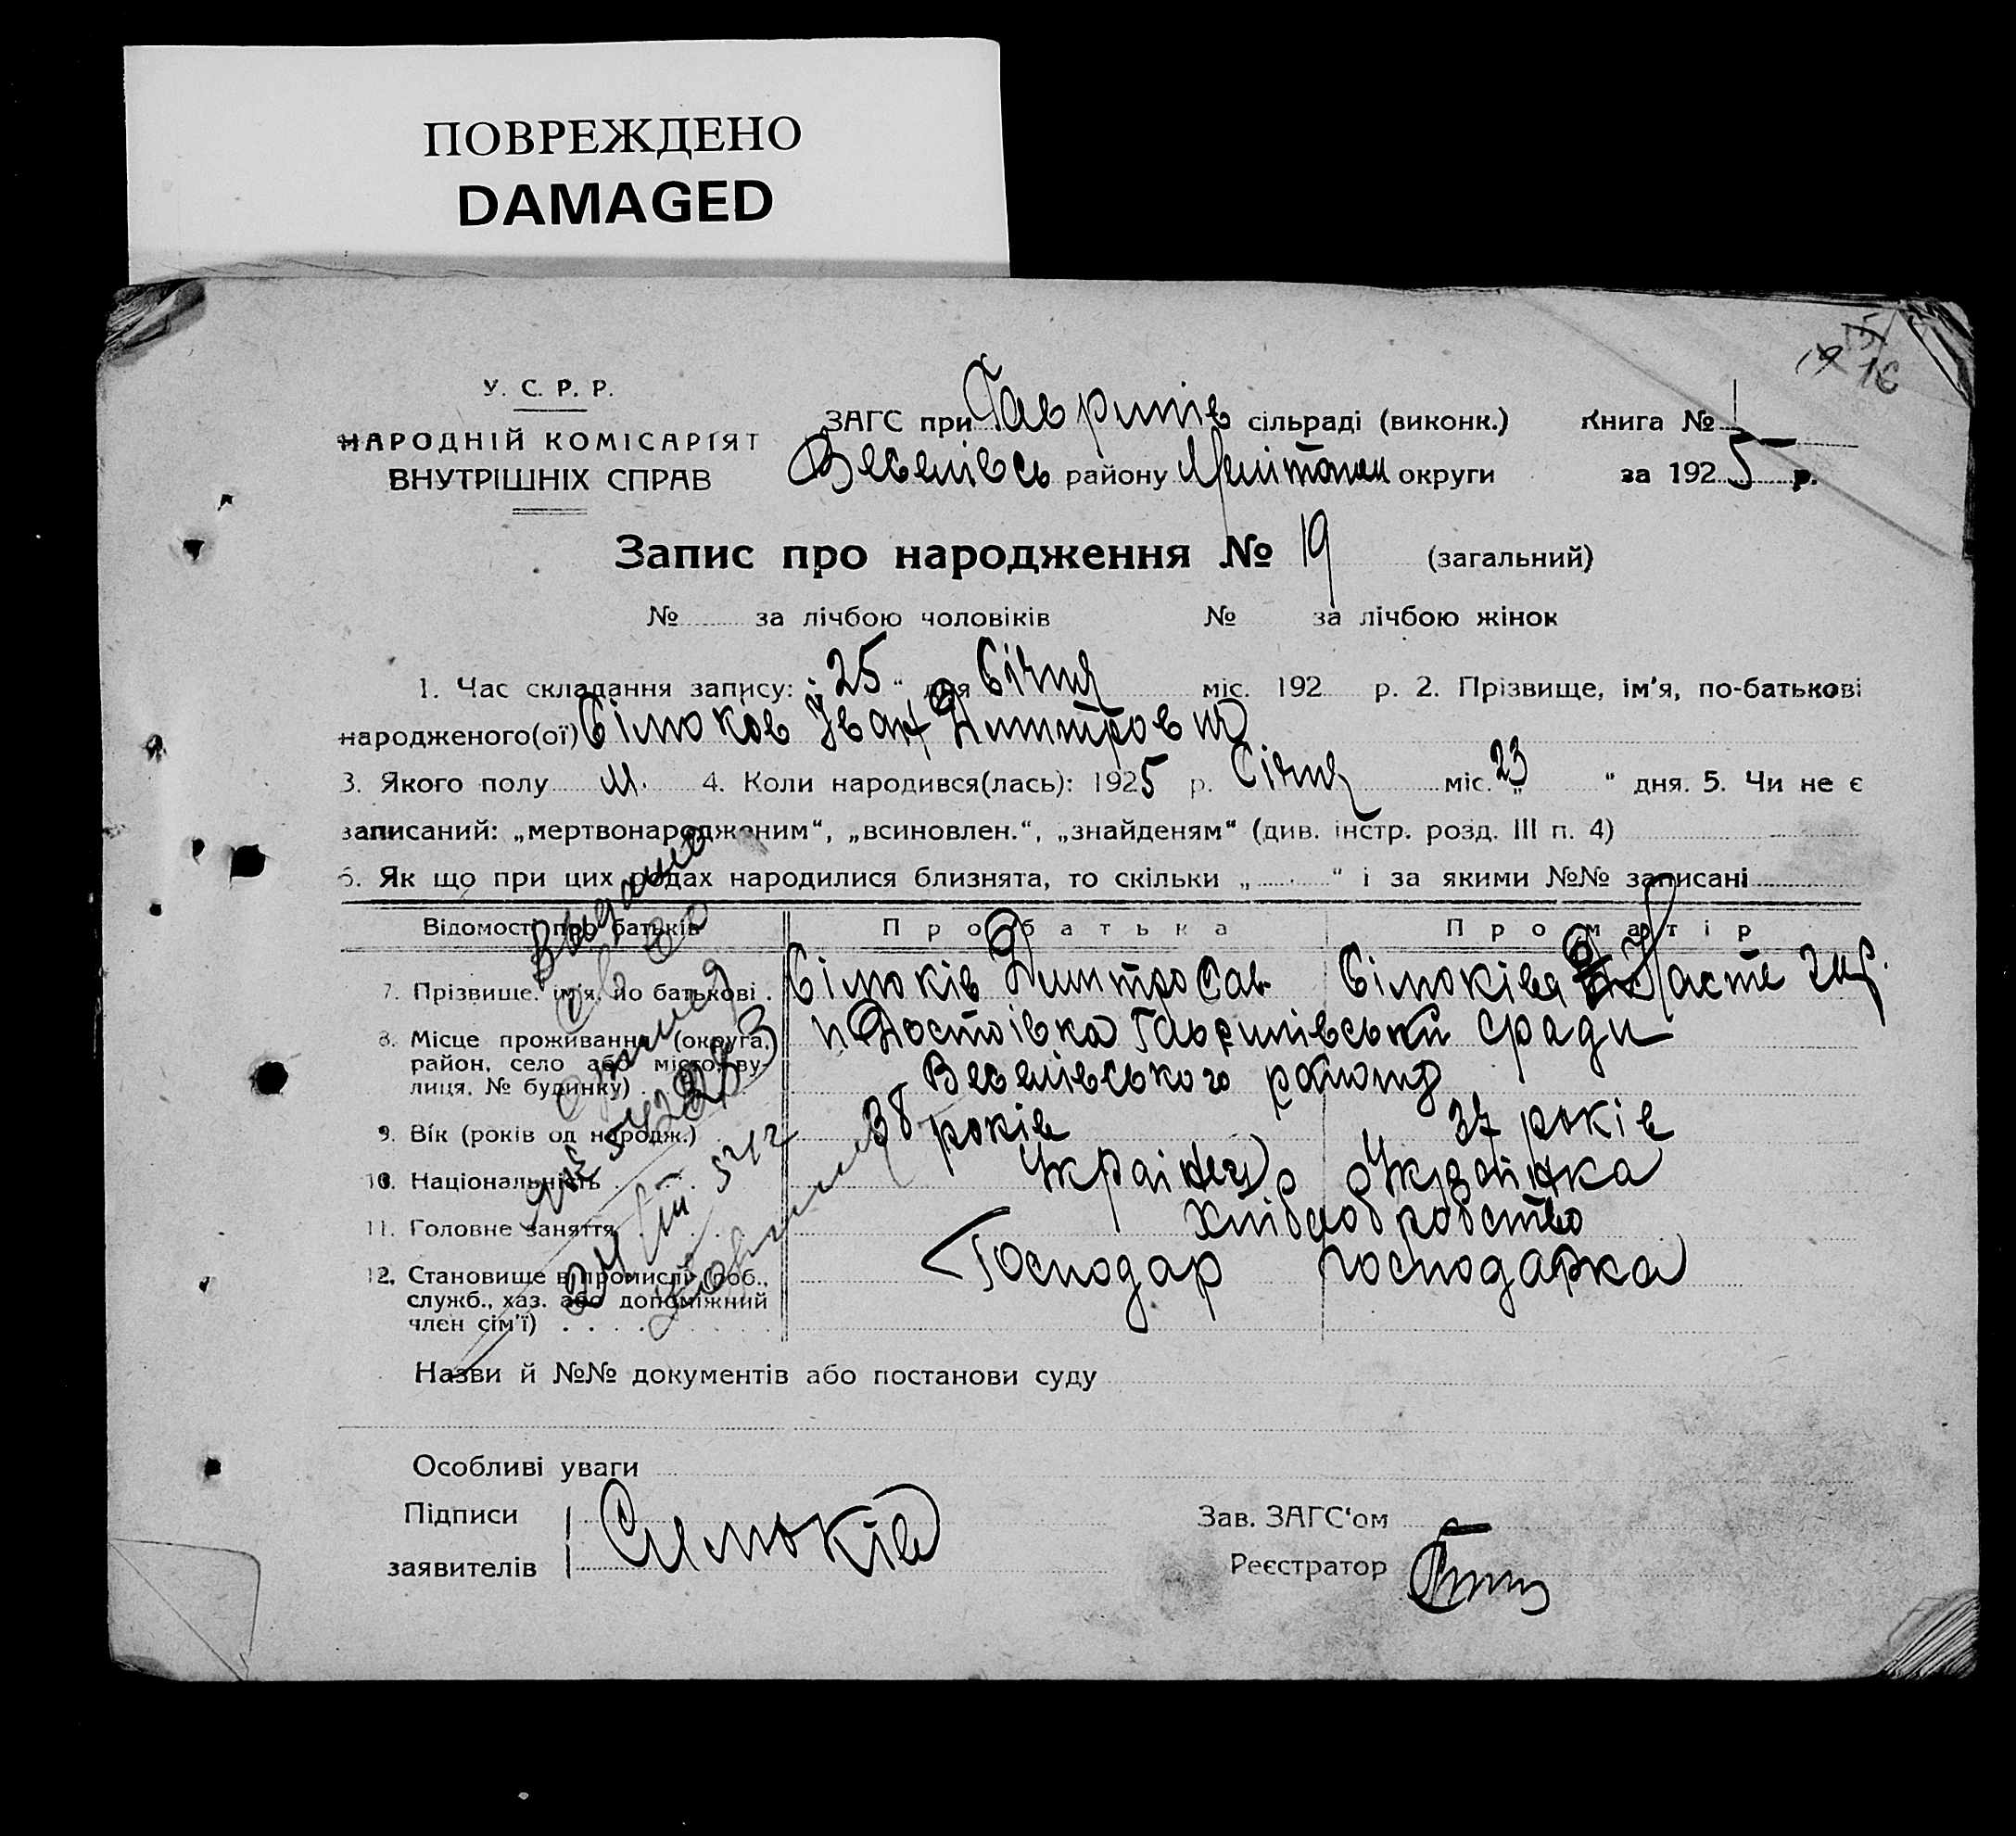 ПОВРЕЖДЕНО
DAMAGED
У. С. Р. Р.
НАРОДНІЙ КОМІСАРІЯТ
ВНУТРІШНІХ СПРАВ
ЗАГС при Гаврилів сільраді (виконк.) Книга № 1
Веселівсь району Мелітопол округи за 1925 р.
16
Запис про народження № 19 (загальний)
№ за лічбою чоловіків № за лічбою жінок
1. Час складання запису: „25“ дня Січня міс. 192 р. 2. Прізвище, ім'я, по-батькові
народженого(ої) Сімоков Іван Дмитров
3. Якого полу м. 4. Коли народився(лась): 1925 р. Січня міс. „23“ дня. 5. Чи не є
записаний: „мертвонародженим“, „всиновлен.“, „знайденям“ (див. інстр. розд. III п. 4)
6. Як що при цих родах народилися близнята, то скільки „ “ і за якими №№ записані
Відомості про батьків Про батька Про матір
7. Прізвище, ім'я, по батькові. Сімоків Дмитро Сав. Сімоківа
8. Місце проживання (округа, район, село або місто, вулиця, № будинку) Достоівка Гаврилівськи сради
Веселівського району
9. Вік (років од народж.) 38 років 37 років
10. Національність Украінец Украінка
11. Головне заняття хліборобство
12. Становище в промислі (роб., служб., хаз. або допоміжний член сім'ї) Господар господарка
Видано
Назви й №№ документів або постанови суду
Особливі уваги
Підписи
заявителів Симоків
Зав. ЗАГС'ом
Реєстратор